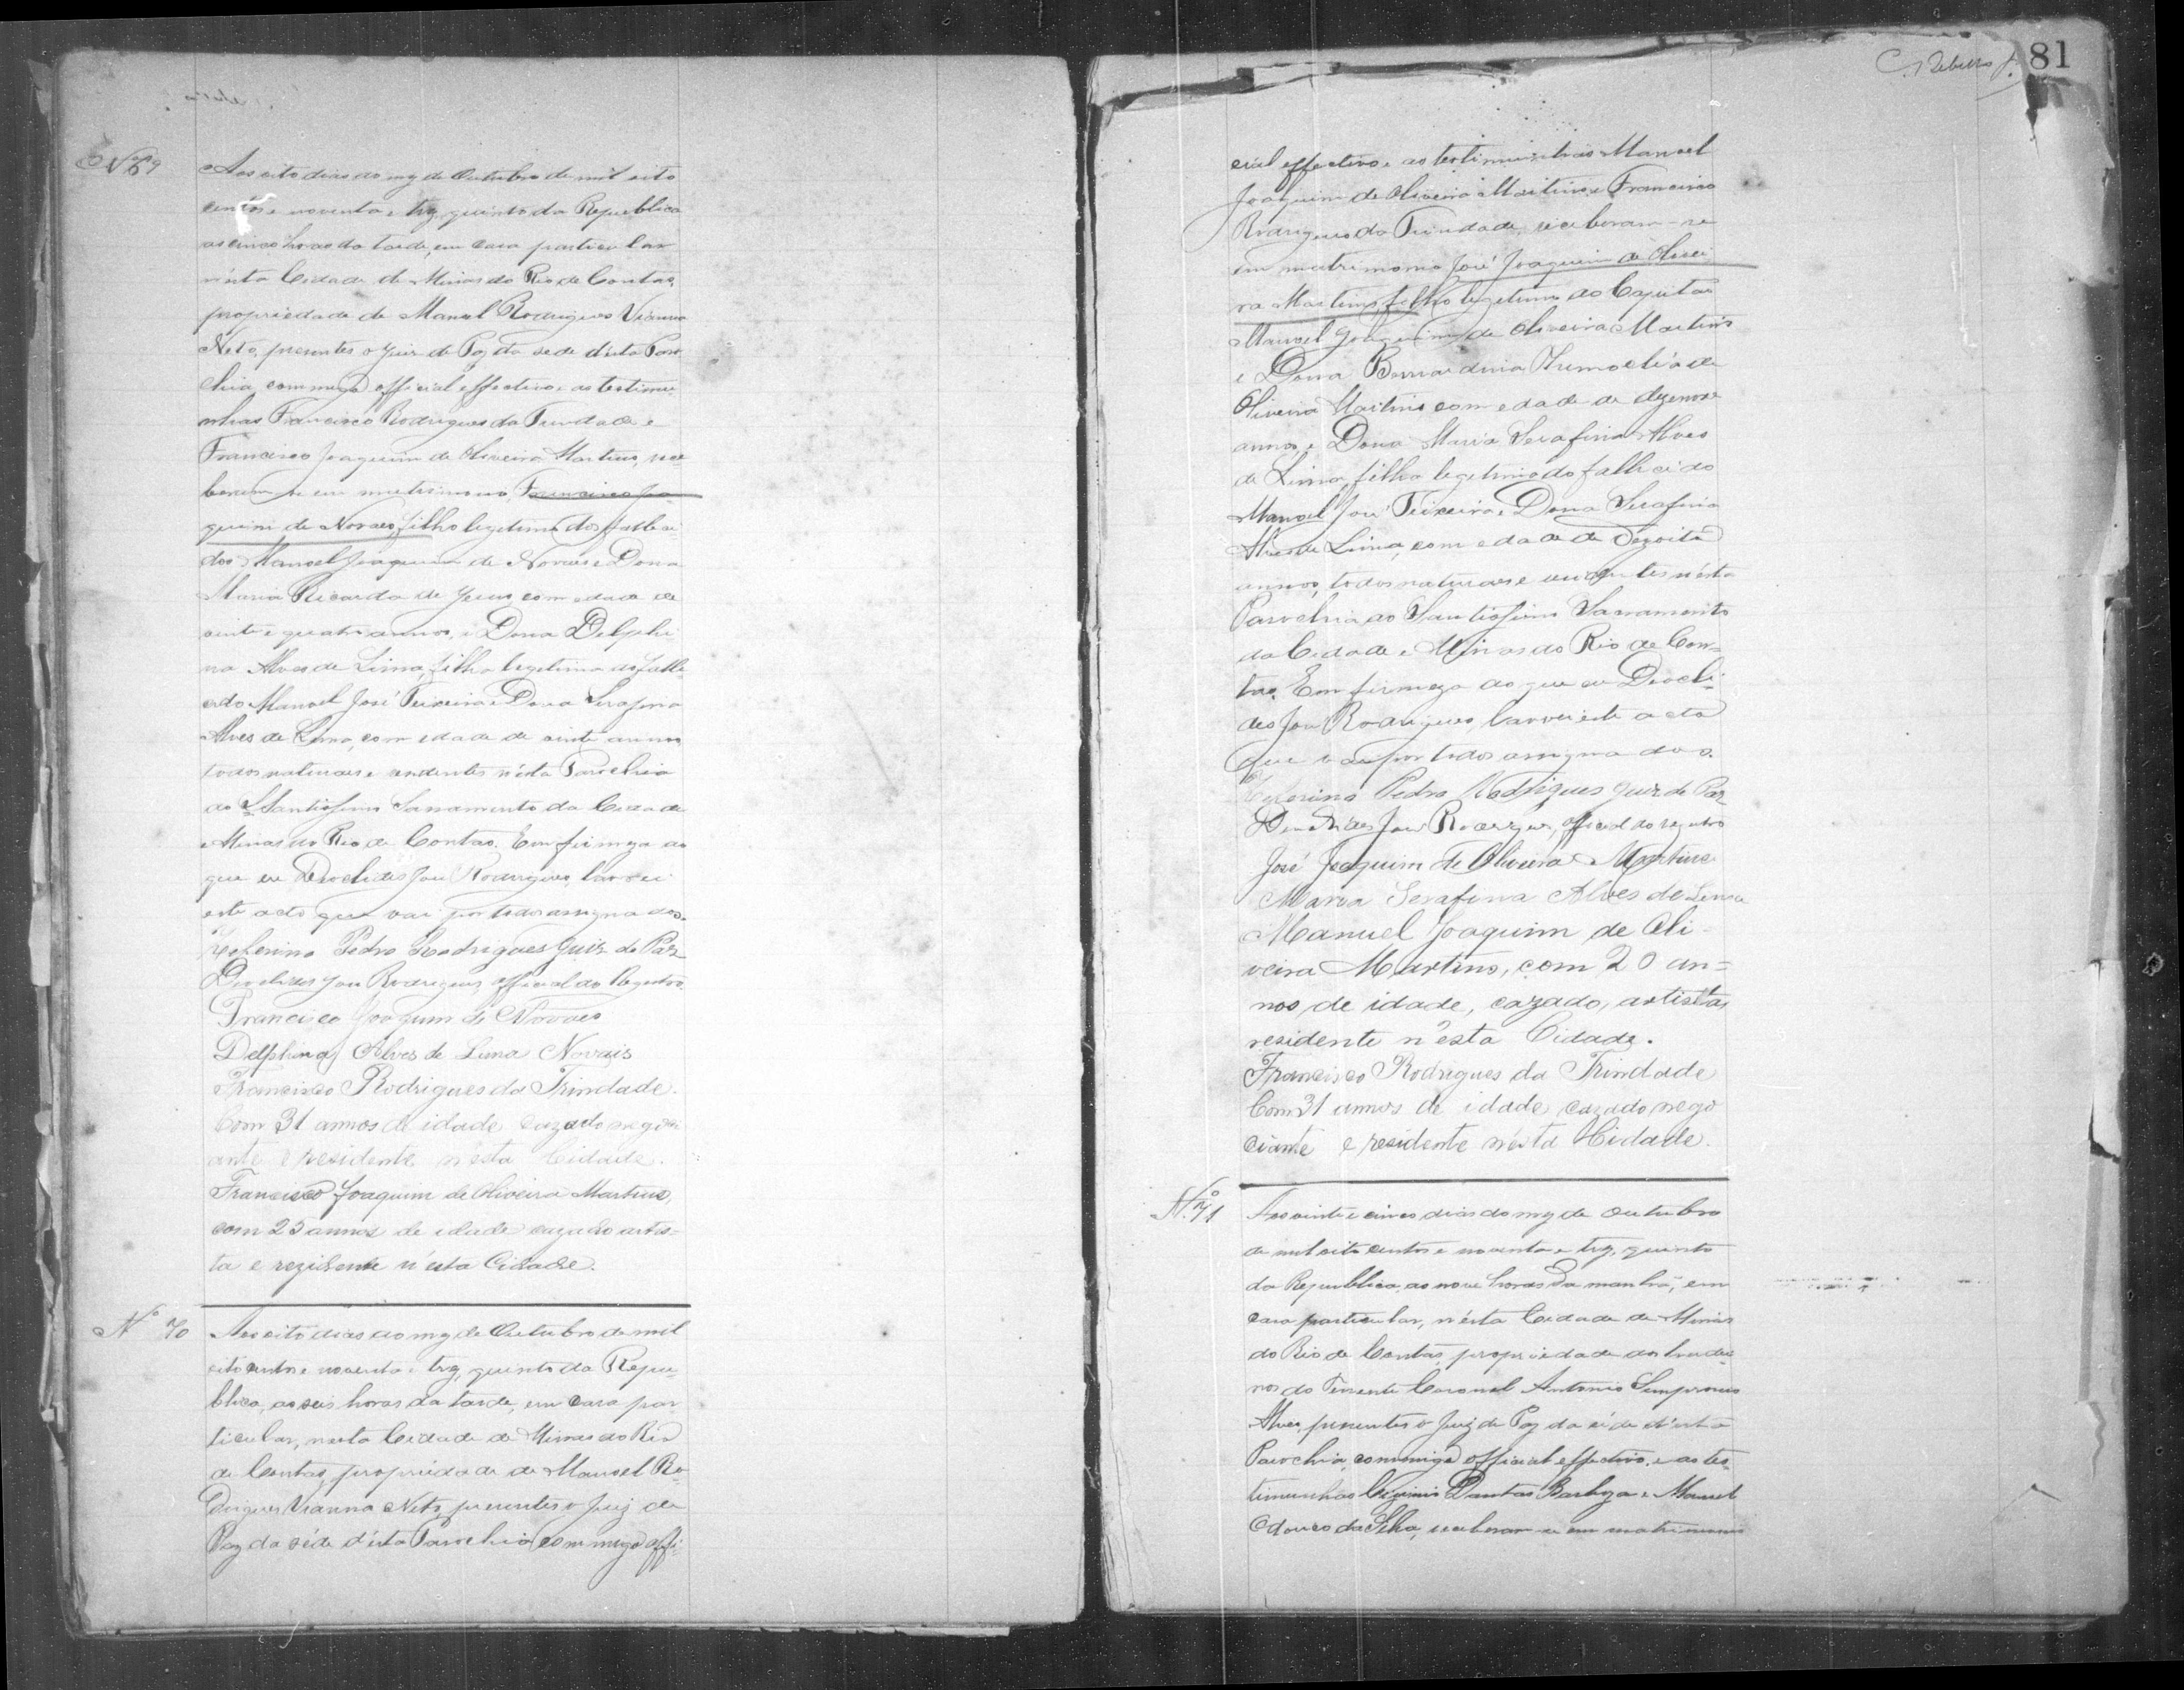 Nº 69
Aos oito dias do mez de Outubro de mil oito
centos e noventa e trez, quinto da Republica
as cinco horas da tarde, em casa particular
n'esta Cidade de Minas do Rio de Contas,
propriedade de Manoel Rodrigues Vianna
Neto, presentes o Juiz de Paz da sede d'esta Paro
chia, commigo official effectivo e as testimu
nhas Francisco Rodrigues da Trindade e
Francisco Joaquim de Oliveira Martins, rece
beram-se em matrimonio, Francisco Joa
quim de Novaes, filho legitimo dos falleci
dos Manoel Joaquim de Novaes e Dona
Maria Ricarda de Jesus, com edade de
vinte e quatro annos, e Dona Delphi
na Alves de Lima, filha legitima do falle
cido Manoel José Teixeira e Dona Serafina
Alves de Lima, com edade de vinte annos
todos naturaes e residentes n'esta Parochia
do Santissimo Sacramento da Cidade
e Minas do Rio de Contas. Em firmeza do
que eu Deoclides José Rodrigues, lavrei
este acto que vai por todos assignados.
Zeferino Pedro Rodrigues Juiz de Paz
Deoclides José Rodrigues, official do Registro.
Francisco Joaquim de Novaes
Delphina Alves de Lima Novais
Francisco Rodrigues da Trindade.
Com 31 annos de idade cazado negoci
ante e residente n'esta Cidade.
Francisco Joaquim de Oliveira Martins,
com 25 annos de idade cazado artis-
ta e rezidente n'esta Cidade.
Nº 70
Aos oito dias do mez de Outubro de mil
oito centos e noventa e trez, quinto da Repu-
blica, as seis horas da tarde, em casa par
ticular, nesta Cidade de Minas do Rio
de Contas, propriedade de Manoel Ro-
drigues Vianna Neto, presentes o Juiz de
Paz da séde d'esta Parochia commigo offi-
81
cial effectivo e as testimunhas Manoel
Joaquim de Oliveira Martins e Francisco
Rodrigues da Trindade, receberam-se
em matrimonio José Joaquim de Olivei
ra Martins, filho legitimo do Capitão
Manoel Joaquim de Oliveira Martins
e Dona Bernardina de
Oliveira Martins com edade de dezenove
annos e Dona Maria Serafina Alves
de Lima, filha legitima do fallecido
Manoel José Teixeira e Dona Serafina
Alves de Lima, com edade de dezoito
annos, todos naturaes e residentes n'esta
Parochia do Santissimo Sacramento
da Cidade e Minas do Rio de Con-
tas. Em firmeza do que eu Deocli-
des José Rodrigues, lavrei este acto
que vai por todos assignados.
Zeferino Pedro Rodrigues Juiz de Paz
Deoclides José Rodrigues, official do registro
José Joaquim de Oliveira Martins
Maria Serafina Alves de Lima
Manuel Joaquim de Oli-
veira Martins, com 20 an-
nos de idade, cazado, artista,
residente n'esta Cidade.
Francisco Rodrigues da Trindade
Com 31 annos de idade cazado nego
ciante e residente n'esta Cidade.
N.º 71
Aos vinte e cinco dias do mez de Outubro
de mil oito centos e noventa e trez, quinto
da Republica, as nove horas da manhã, em
casa particular, n'esta Cidade de Minas
do Rio de Contas, propriedade dos herdei-
ros do Tenente Coronel Antonio Sempronio
Alves, presentes o Juiz de Paz da séde d'esta
Parochia, commigo official effectivo, e as tes-
timunhas Dantas Barboza e Manoel
da Silva, receberam-se em matrimonio